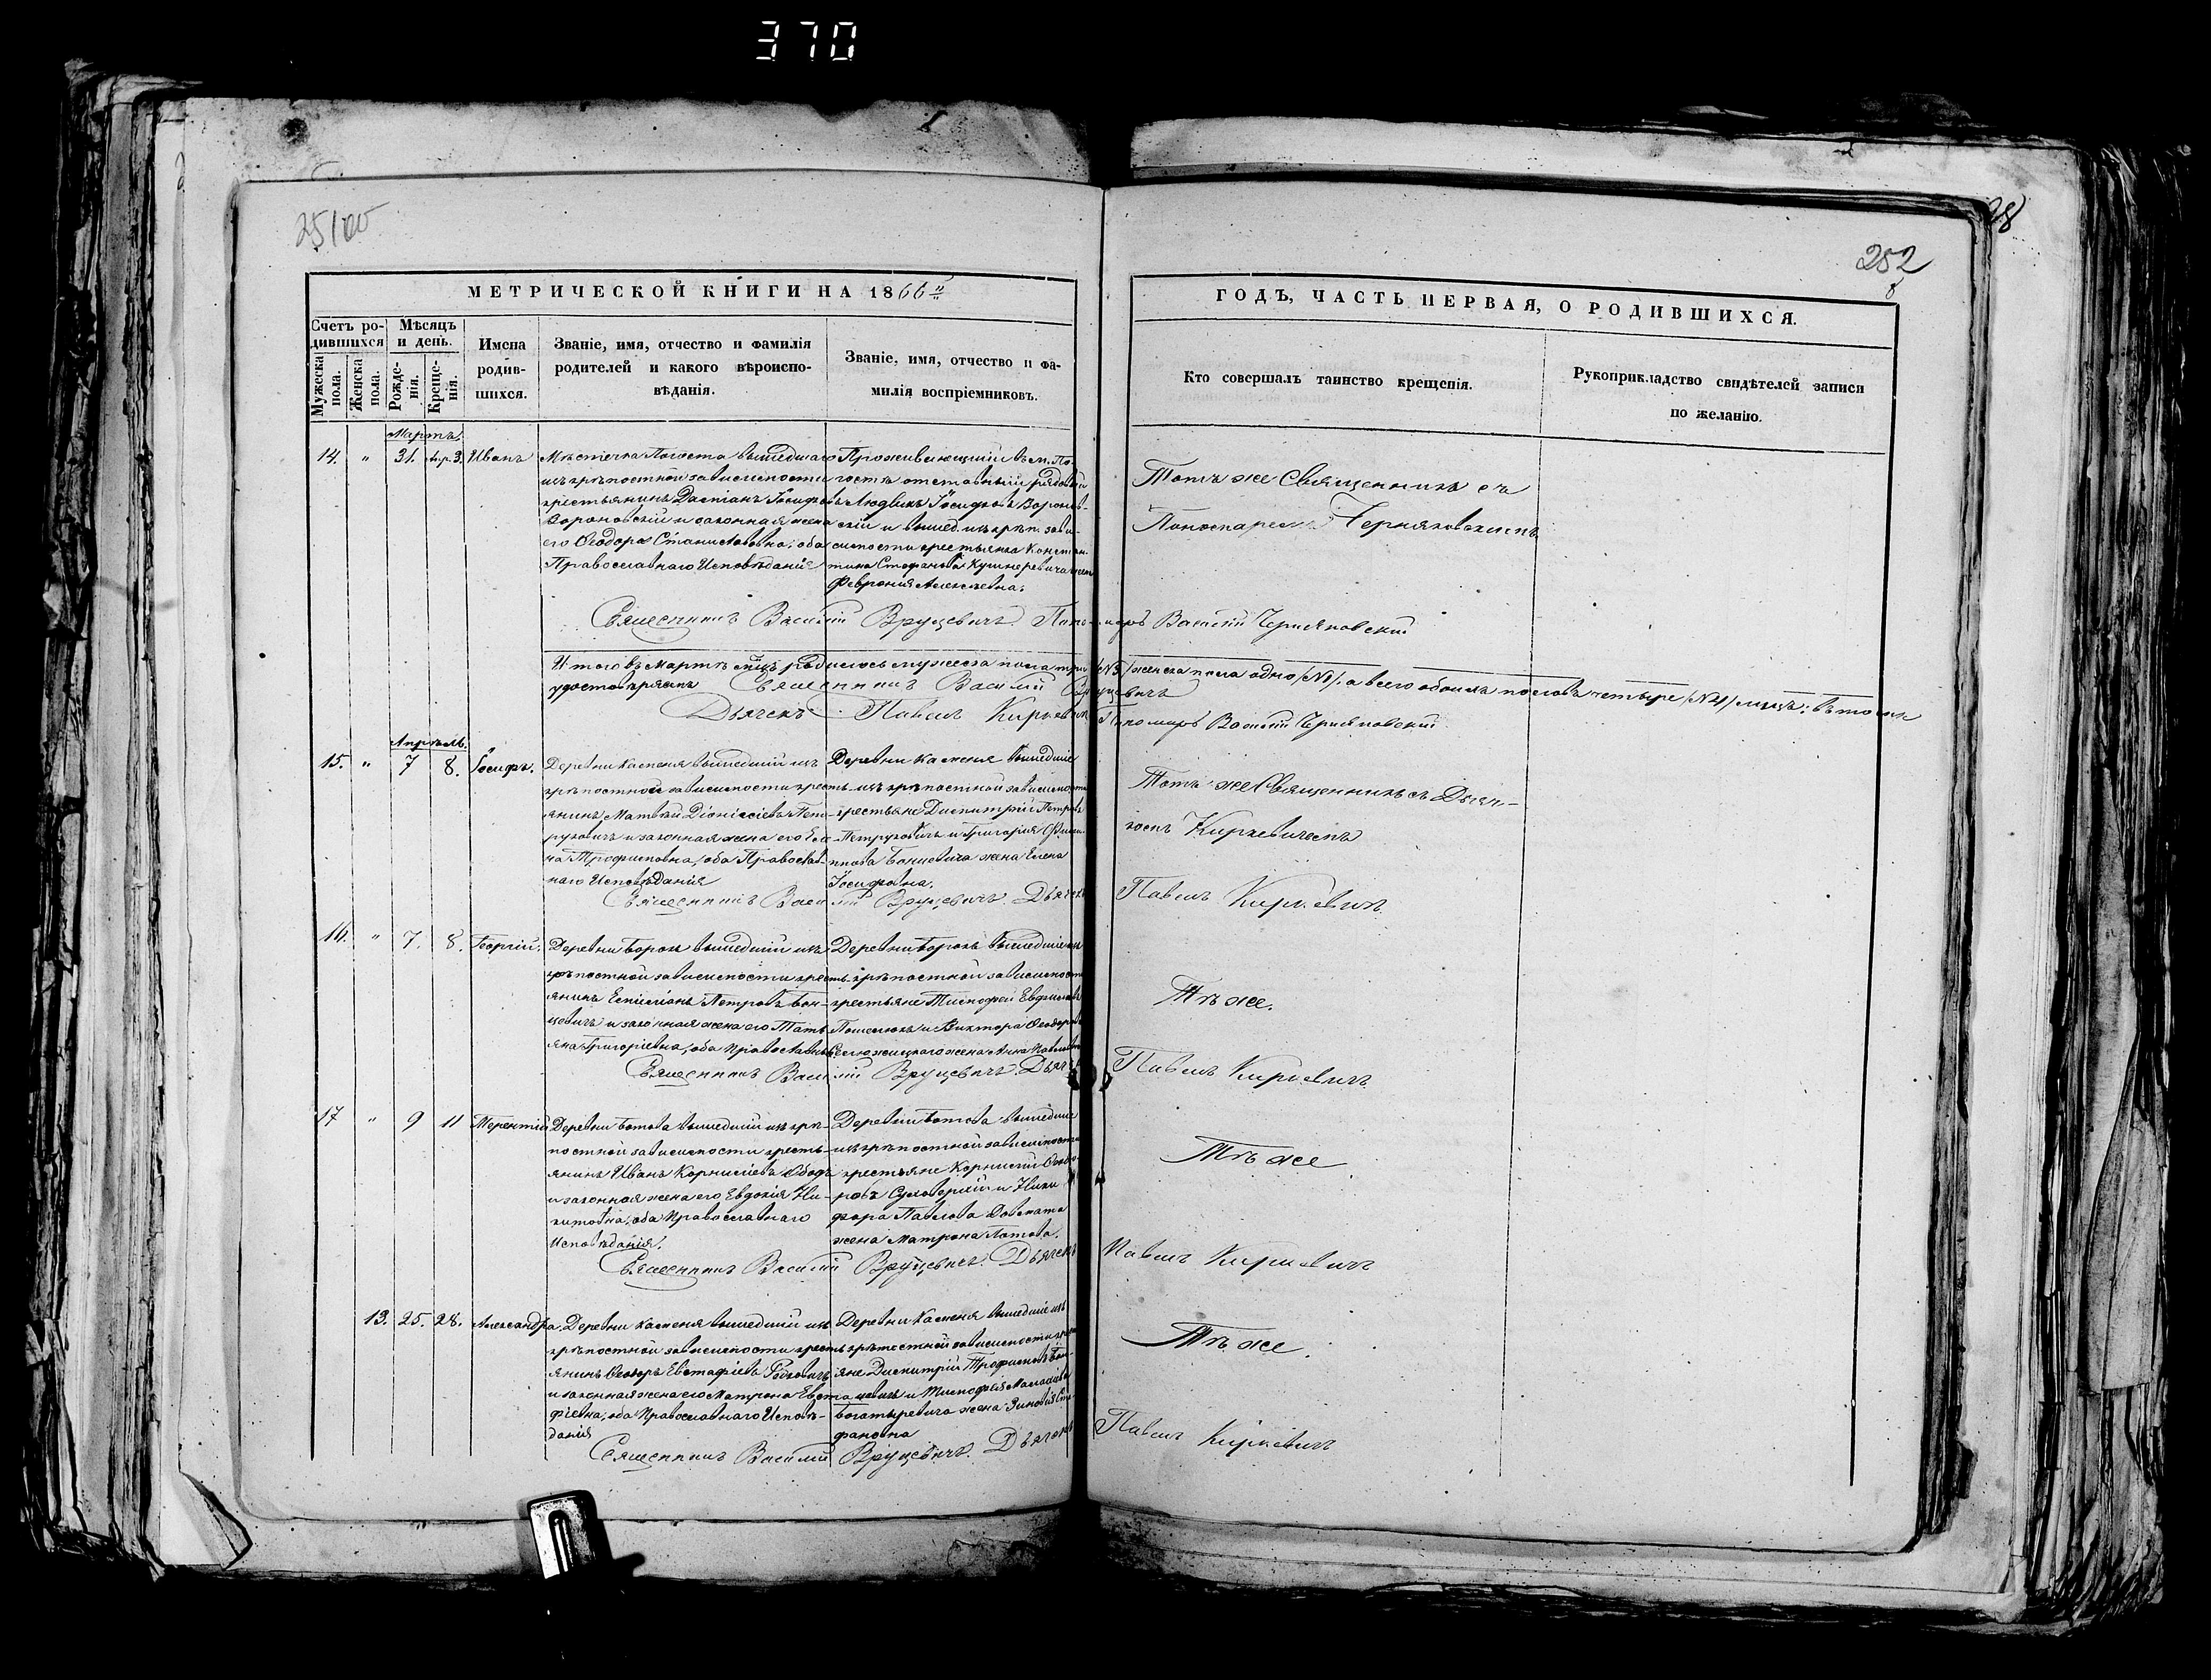 370
252
МЕТРИЧЕСКОЙ КНИГИ НА 1866й
ГОДЪ, ЧАСТЬ ПЕРВАЯ, О РОДИВШИХСЯ.
Счетъ ро-
дившихся
Мужеска
пола.
Женска
пола.
Мѣсяцъ
и день.
Рожде-
нія.
Креще-
нія.
Имена
родив-
шихся.
Званіе, имя, отчество и фамилія
родителей и какого вѣроиспо-
вѣданія.
Званіе, имя, отчество и фа-
милія воспріемниковъ.
Кто совершалъ таинство крещенія.
Рукоприкладство свидѣтелей записи
по желанію.
Мартъ.
14. " 31. Апр. 3. Иванъ
Мѣстечка Погоста вышедшаго
изъ крѣпостной зависимости
крестьянинъ Даміанъ Іосифовъ
Вороновскій и законная жена
его Ѳеодора Станиславовна, оба
Православнаго Исповѣданія
Проживающій въ м. По-
гостѣ отставный рядовый
Людвикъ Іосифовъ Воронов-
скій и вышед. изъ крѣп. зави-
симости крестьянка Констан-
тина Стефанова Кушнеревича жена
Феврония Алексѣевна.
Тотъ же Священникъ съ
Пономаремъ Черняковскимъ
Священникъ Василій Вруцевичъ. Пономарь Василій Черняковскій
Итого въ Мартѣ мцѣ родилось мужеска пола три /№3/ женска пола одно /№1/, а всего обоихъ половъ четыре /№4/ лицъ; въ томъ
удостовѣряемъ Священникъ Василій Вруцевичъ
Дьячекъ Павелъ Киркевичъ Пономарь Василій Черняковскій
Апрѣль.
15. " 7 8. Іосифъ.
Деревни Каменя вышедшій изъ
крѣпостной зависимости кресть-
янинъ Матвѣй Діонисіевъ Пет-
руковичъ и законная жена его Еле-
на Трофимовна, оба Православ-
наго Исповѣданія
Деревни Каменя вышедшіе
изъ крѣпостной зависимости
крестьяне Димитрій Петровъ
Петруковичъ и Григорія Филип-
пова Банцевича жена Елена
Іосифовна.
Тотъ же Священникъ съ Дьяч-
комъ Киркевичемъ
Священникъ Василій Вруцевичъ. Дьячекъ Павелъ Киркевичъ
16. " 7. 8. Георгій.
Деревни Борокъ вышедшій изъ
крѣпостной зависимости кресть-
янинъ Емиліанъ Петровъ Бан-
цевичъ и законная жена его Тать-
яна Григоріевна, оба Православн.
Деревни Борокъ вышедшіе изъ
крѣпостной зависимости
крестьяне Тимофей Евфимовъ
и Виктора Ѳеодорова
жена Анна
Тѣ же.
Священникъ Василій Вруцевичъ. Дьячекъ Павелъ Киркевичъ.
17 " 9 11 Терентій
Деревни Ботова вышедшій изъ крѣ-
постной зависимости кресть-
янинъ Иванъ Корниліевъ Ободъ
и законная жена его Евдокія Ни-
китовна, оба Православнаго
Исповѣданія.
Деревни Ботова вышедшіе
изъ крѣпостной зависимости
крестьяне Корнилій Ѳеодо-
ровъ Суховерхій и Ники-
фора Павлова Довмата
жена Матрона
Тѣ же
Священникъ Василій Вруцевичъ. Дьячекъ Павелъ Киркевичъ
13. 25. 28. Александра.
Деревни Каменя вышедшій изъ
крѣпостной зависимости кресть-
янинъ Ѳеодоръ Евстафіевъ Родковичъ
и законная жена его Матрона Евста-
фіевна, оба Православнаго Исповѣ-
данія
Деревни Каменя вышедшіе изъ
крѣпостной зависимости кресть-
яне Димитрій Трофимовъ Бан-
цевичъ и Тимофея
Богатыревича жена Зиновія Сте-
фановна
Тѣ же.
Священникъ Василій Вруцевичъ. Дьячекъ Павелъ Киркевичъ